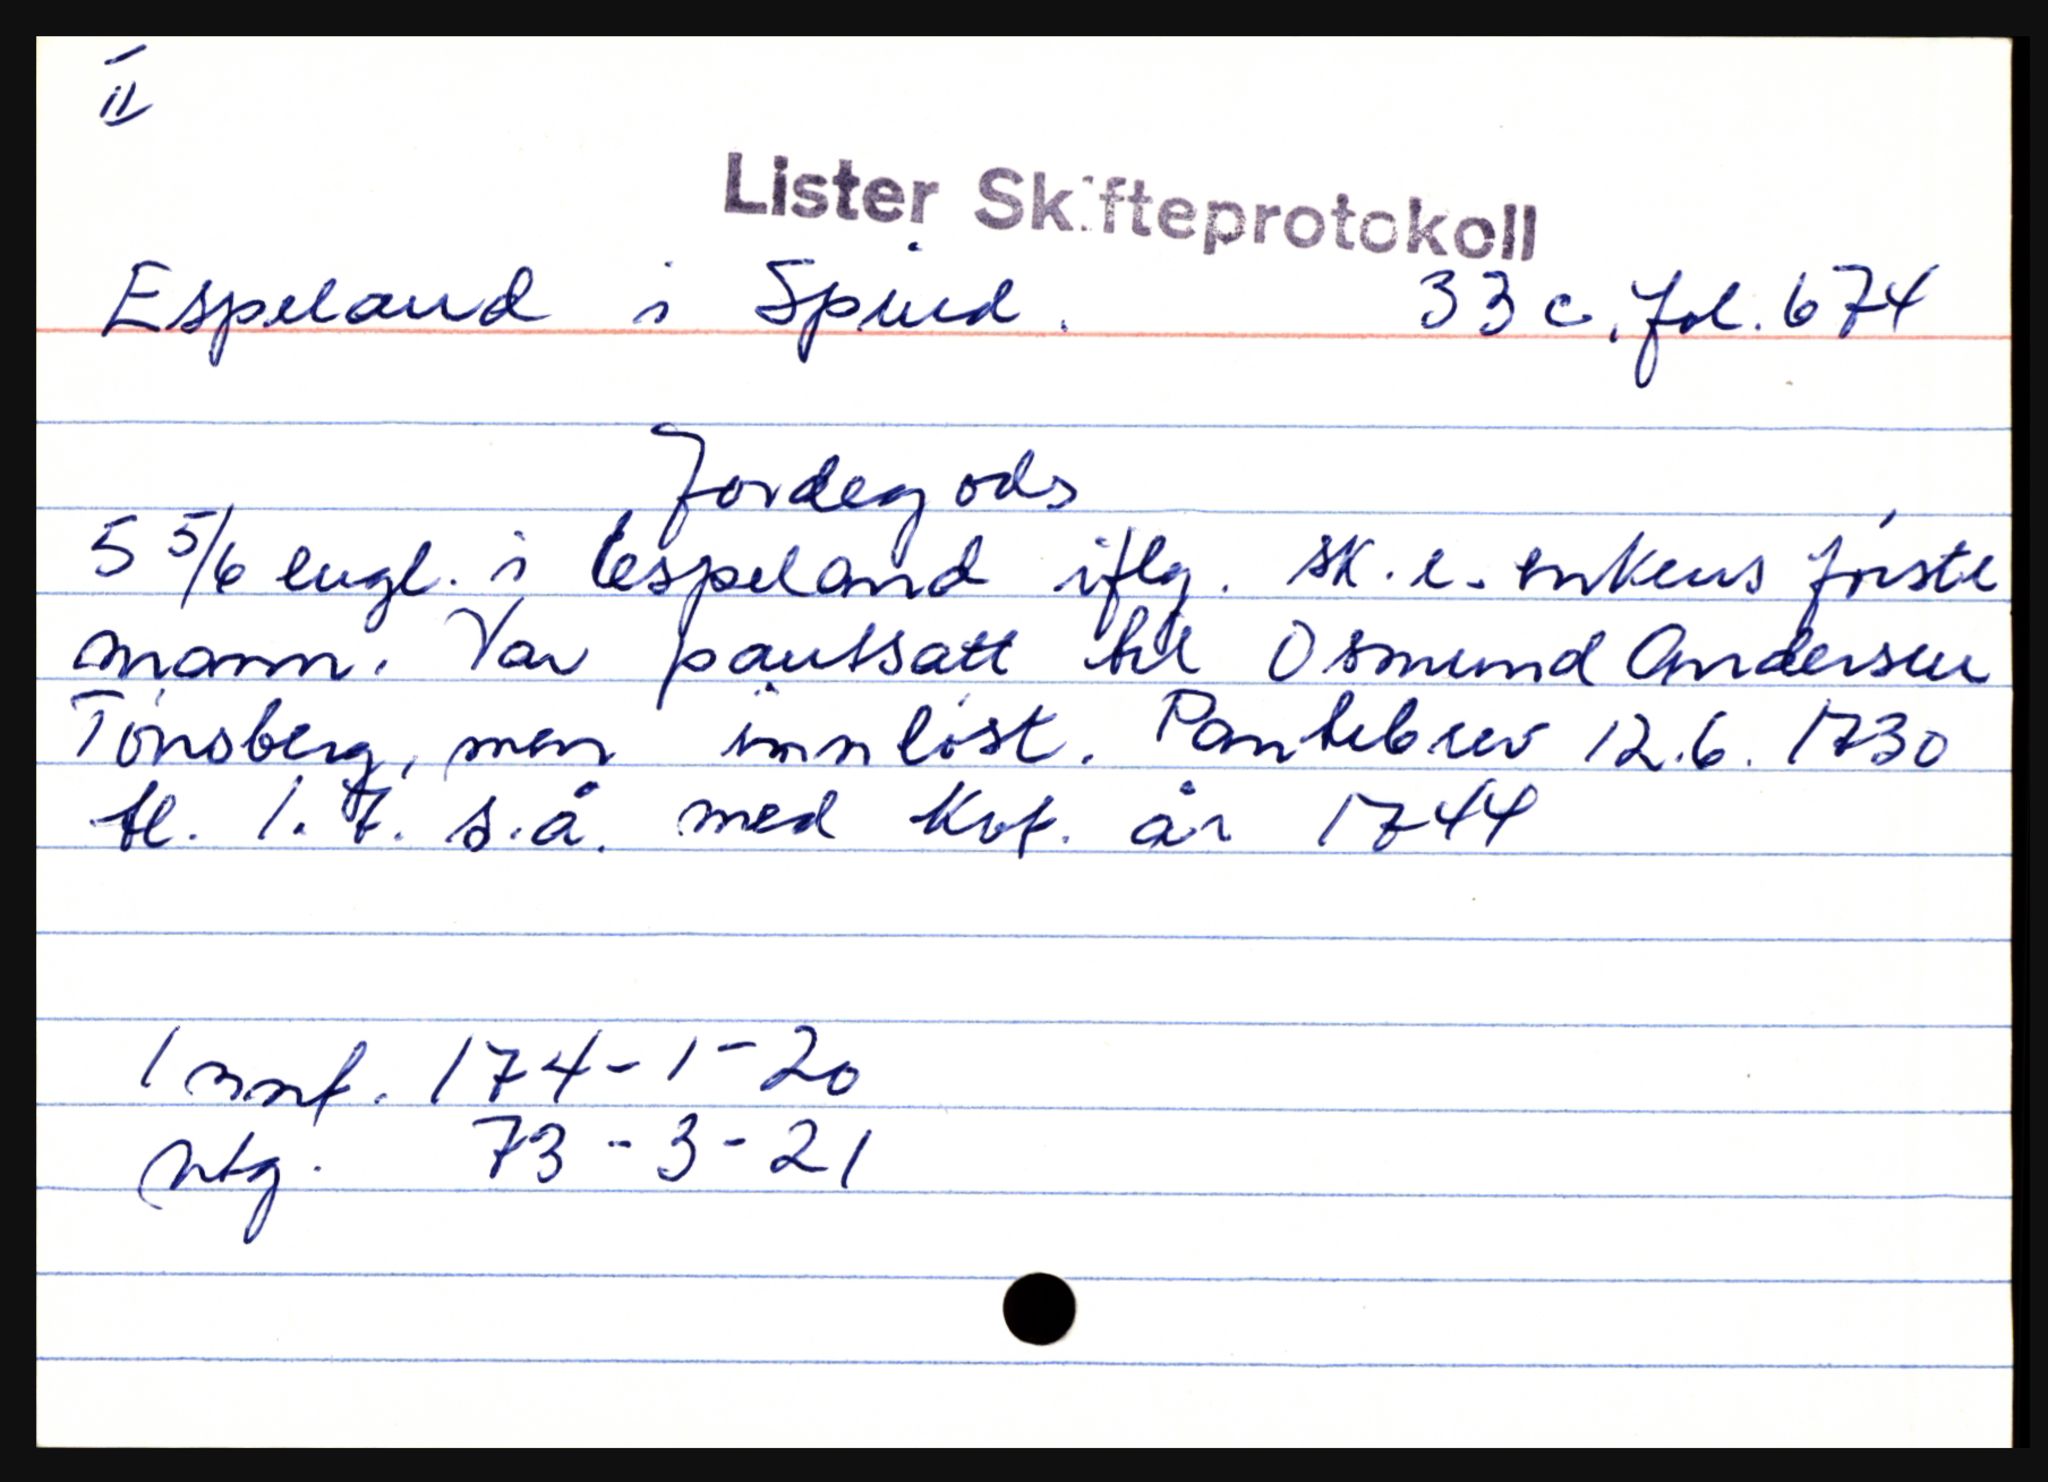 II
Lister Skifteprotokoll
Espeland i Spind. 33 c. fol. 674
Jordegods
5 5/6 engl. i Espeland iflg. sk. e. enkens første
mann. Var pantsatt til Osmund Andersen
Tønsberg, men innløst. Pantebrev 12.6. 1730
tl. 1.7. s.å. med kvt. år 1744
Innf. 174-1-20
Utg. 73-3-21